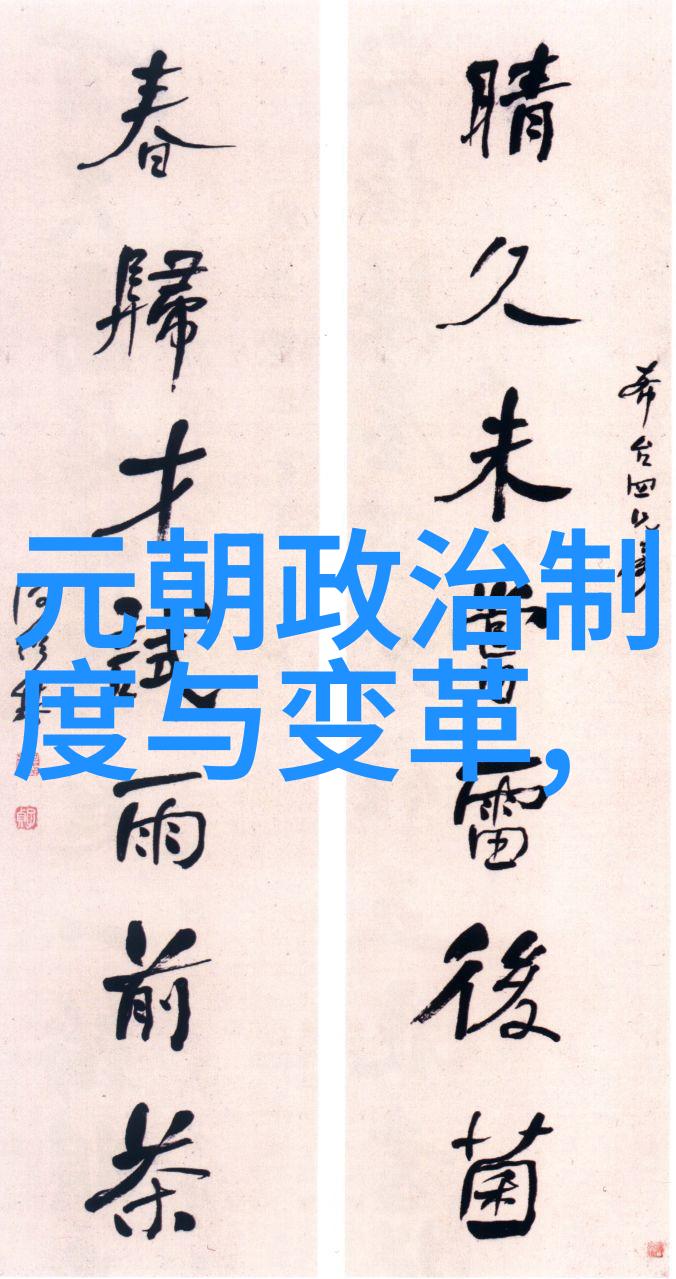 晴久未嘗雷後菌
春歸才試雨前茶
元朝政治制
度与变革,